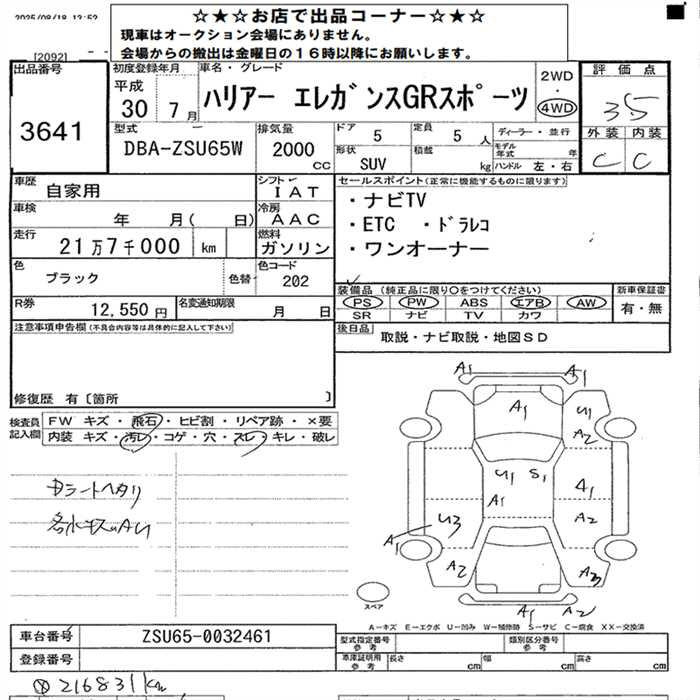 2025/08/18 13:52
[2092]
☆★☆お店で出品コーナー☆★☆
現車はオークション会場にありません。
会場からの搬出は金曜日の16時以降にお願いします。
出品番号
3641
初度登録年月
平成
30 7月
車名・グレード
ハリアー エレガンスGRスポーツ
2WD
・
4WD
評価点
3.5
外装 内装
C C
型式
DBA-ZSU65W
排気量
2000
cc
ドア
5
定員
5 人
形状
SUV
積載
kg
ディーラー・並行
モデル年式 年
ハンドル 左・右
車歴
自家用
シフト
IAT
車検
年 月( 日)
冷房
AAC
走行
21万7千000 km
燃料
ガソリン
色
ブラック
色替
色コード
202
R券
12,550 円
名変通知期限
月 日
セールスポイント(正常に機能するものに限ります)
・ナビTV
・ETC ・ドラレコ
・ワンオーナー
装備品 (純正品に限り○をつけてください)
PS PW ABS エアB AW
SR ナビ TV カワ
新車保証書
有・無
後日品
取説・ナビ取説・地図SD
注意事項申告欄(不具合内容等は具体的に記入して下さい)
修復歴 有〔箇所 〕
検査員記入欄
FW キズ・飛石・ヒビ割・リペア跡・×要
内装 キズ・汚レ・コゲ・穴・スレ・キレ・破レ
A1
A1
A1
U1
A2
U1 S1
A1
A1
A2
U3
A1
A2
A3
A1
A2
スペア
A-キズ E-エクボ U-凹み W-補修跡 S-サビ C-腐食 XX-交換済
車台番号
ZSU65-0032461
登録番号
型式指定番号
参考
類別区分番号
参考
車庫証明用
参考
長さ cm
幅 cm
高さ cm
216831km